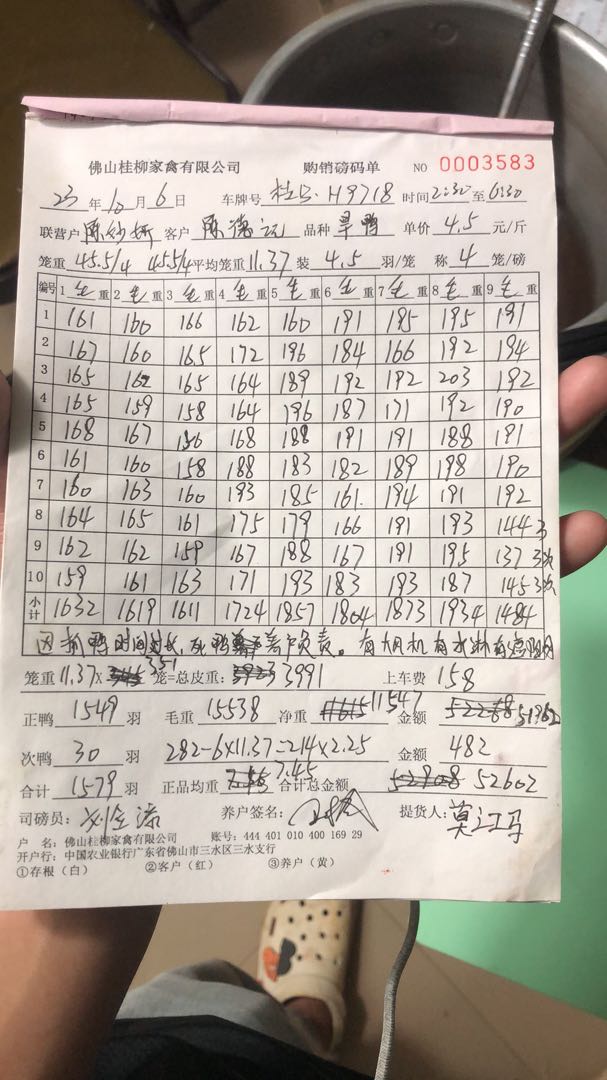 佛山桂柳家禽有限公司 购销磅码单 NO 0003583
23年10月6日 车牌号 桂J·H9718 时间 2:30 至 6:30
联营户 陈妙娇 客户 陈德 品种 旱鸭 单价 4.5 元/斤
笼重 45.5/4 45.5/4 平均笼重 11.37 装 4.5 羽/笼 称 4 笼/磅
编号 1 毛重 2 毛重 3 毛重 4 毛重 5 毛重 6 毛重 7 毛重 8 毛重 9 毛重
1 161 160 166 162 160 191 195 195 191
2 167 160 165 172 196 184 166 192 194
3 165 162 165 164 189 192 192 203 192
4 165 159 158 164 196 187 171 192 190
5 168 167 156 168 188 191 191 188 191
6 161 160 158 188 183 182 189 198 190
7 160 163 160 193 185 161 194 191 192
8 164 165 161 175 179 166 191 193 144 3
9 162 162 159 167 188 167 191 195 137 3次
10 159 161 163 171 193 183 193 187 145 3次
小计 1632 1619 1611 1724 1857 1804 1873 1934 1484
因抓鸭时间过长,死鸭养户负责。有大风机有水
笼重 11.37 × 351 笼=总皮重: 3991 上车费 158
正鸭 1549 羽 毛重 15538 净重 11547 金额 51962
次鸭 30 羽 282-6×11.37=214×2.25 金额 482
合计 1579 羽 正品均重 7.45 合计总金额 52602
司磅员: 养户签名: 提货人: 莫江马
户 名: 佛山桂柳家禽有限公司 账号: 444 401 010 400 169 29
开户行: 中国农业银行广东省佛山市三水区三水支行
①存根(白) ②客户(红) ③养户(黄)